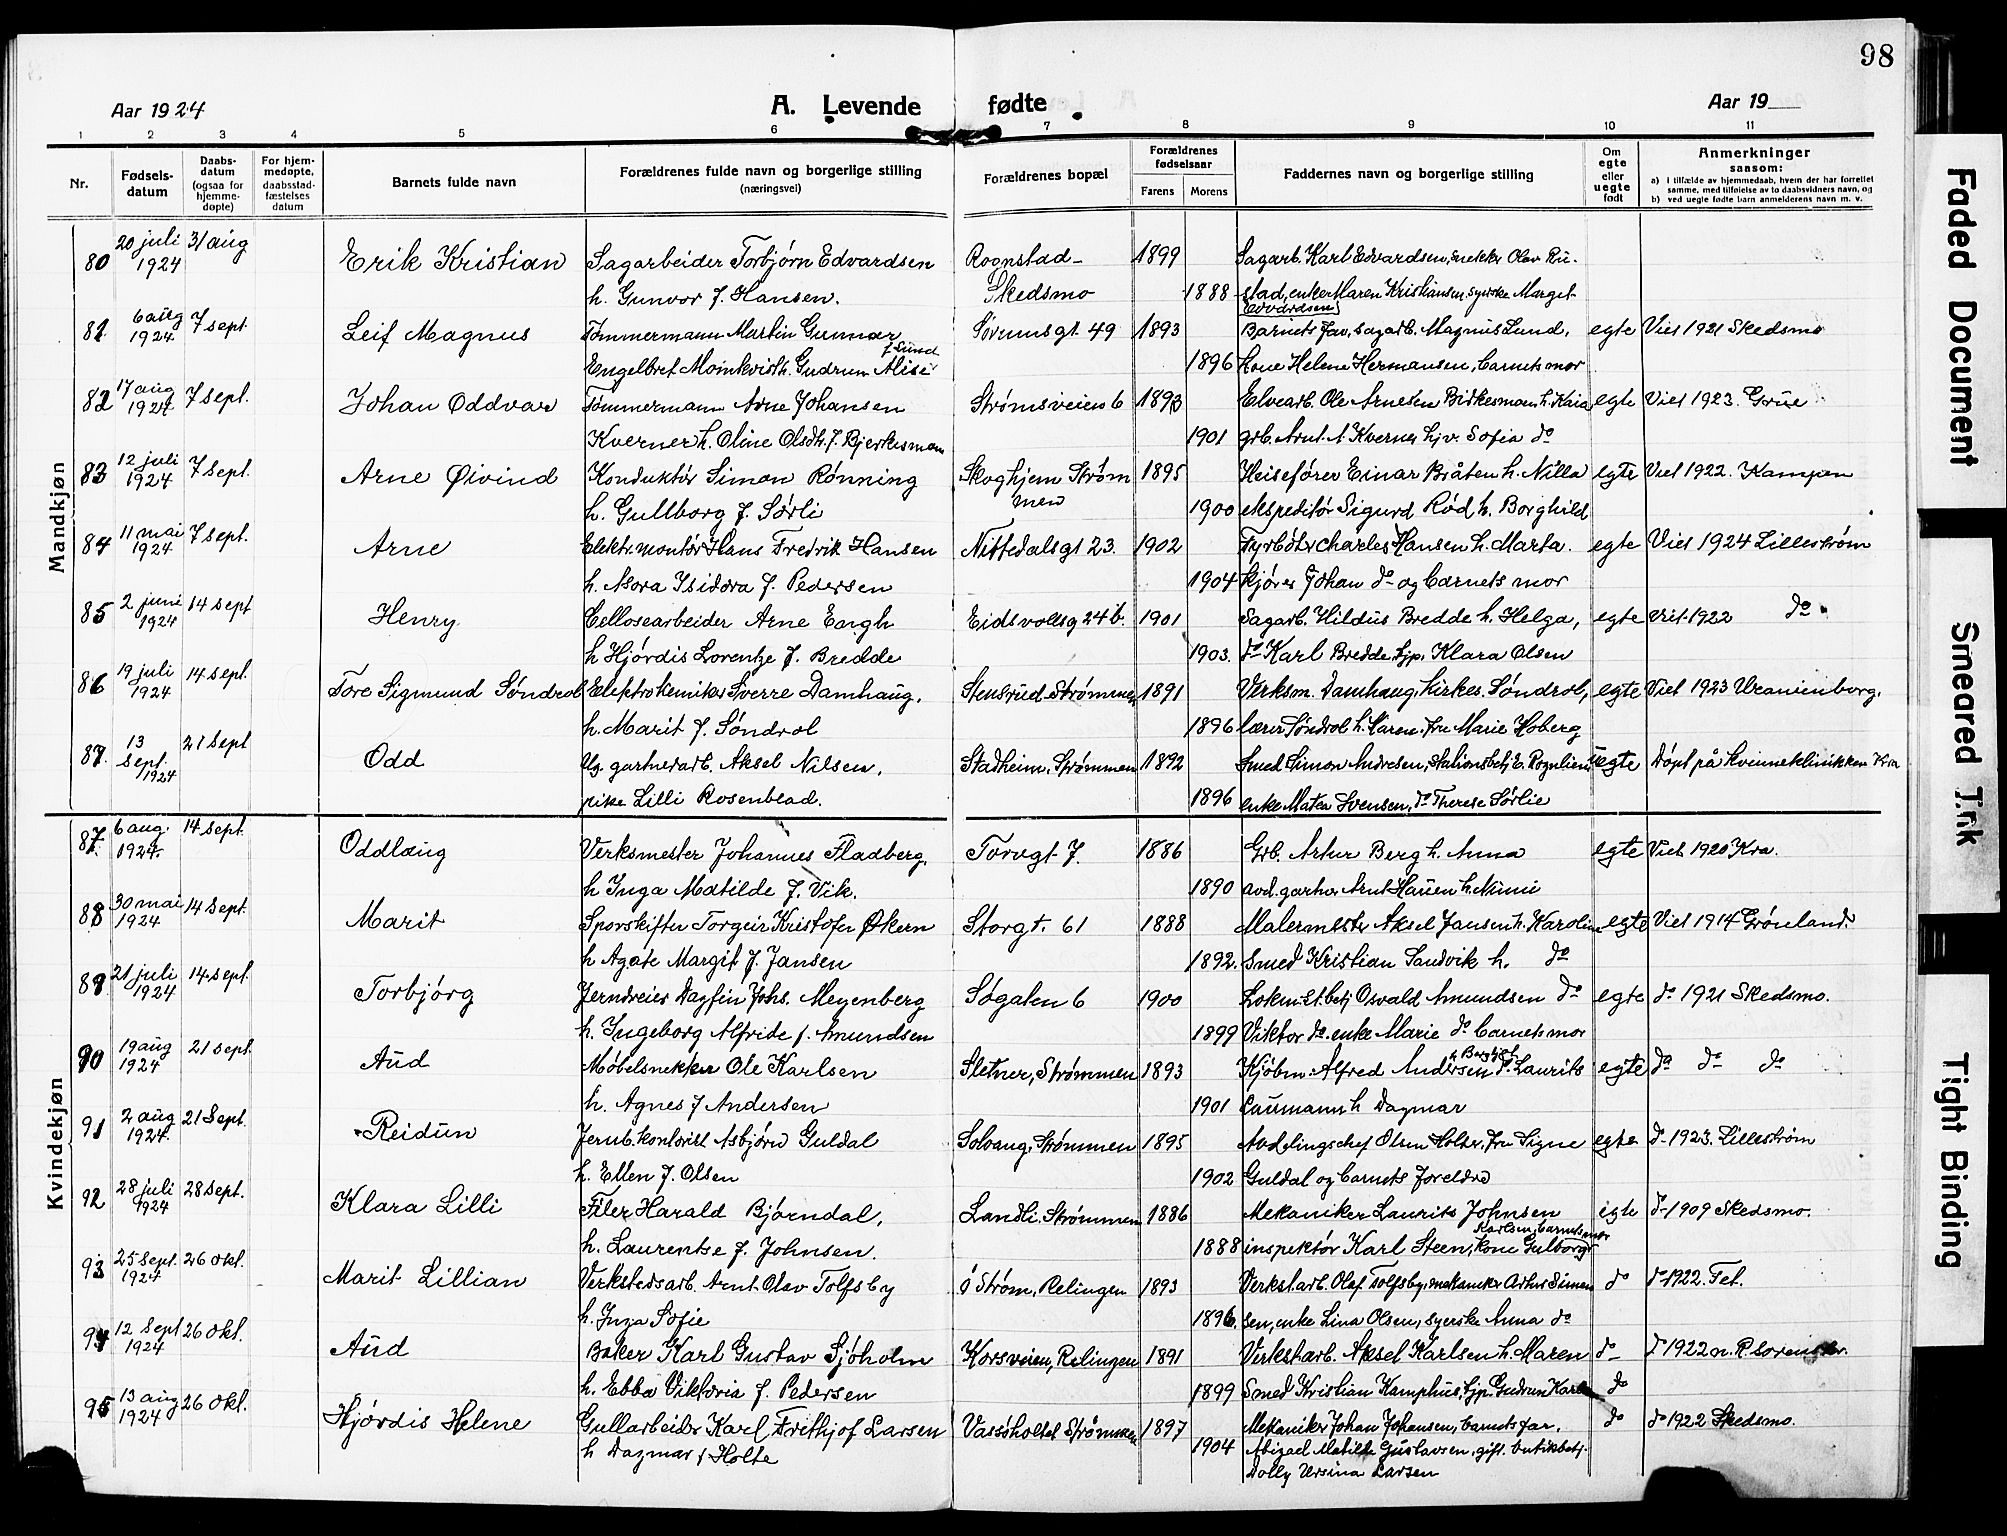 98
Aar 1924
A. Levende fødte
Aar 19
1 2 3 4 5 6 7 8 9 10 11
Nr.
Fødsels-
datum
Daabs-
datum
(ogsaa for
hjemme-
døpte)
For hjem-
medøpte,
daabsstad-
fæstelses
datum
Barnets fulde navn
Forældrenes fulde navn og borgerlige stilling
(næringsvei)
Forældrenes bopæl
Forældrenes
fødselsaar
Farens Morens
Faddernes navn og borgerlige stilling
Om
egte
eller
uegte
født
Anmerkninger
saasom:
a) i tilfælde av hjemmedaab, hvem der har forrettet
samme, med tilføielse av to daabsvidners navn, og
b) ved uegte fødte barn anmelderens navn m. v.
Mandkjøn
80 20 juli 1924 31 aug Erik Kristian Sagarbeider Torbjørn Edvardsen Rognstad- 1899 Sagarb. Karl Edvardsen, snekker Olav Ru-
h. Gunvor f. Hansen. Skedsmo 1888 stad, enke Maren Kristiansen, syerske Margit
Edvardsen
81 6 aug 1924 7 sept. Leif Magnus Tømmermann Martin Gunnar Sørumsgt 49 1893 Barnets far, sagarb. Magnus Lund, egte Viet 1921 Skedsmo
f. Lund
Engelbret Momkvist h. Gudrun Alise 1896 kone Helene Hermansen, barnets mor
82 17 aug 1924 7 sept. Johan Oddvar Tømmermann Arne Johansen Strømsveien 6 1893 Elvearb. Ole Arnesen Birkesmam h. Kaia egte Viet 1923. Grue
Kverner h. Oline Olsdh. f. Bjerkesmam 1901 grb. Arnt A Kverner hjv. Sofia do
83 12 juli 1924 7 sept. Arne Øivind Konduktør Simon Rønning Skoghjem Strøm 1895 Heisefører Einar Bråten h. Nilla egte Viet 1922. Kampen
h. Gullborg f. Sørli men 1900 ekspeditør Sigurd Rød h. Borghild
84 11 mai 1924 7 sept. Arne Elektr. montør Hans Fredrik Hansen Nittedalsgt 23. 1902 Fyrbøter Charles Hansen h. Marta. egte Viet 1924 Lillestrøm
h. Asora Isidora f. Pedersen 1904 kjører Johan do og barnets mor
85 2 juni 1924 14 sept Henry Cellosearbeider Arne Engh Eidsvollsg 24 b. 1901 Sagarb. Hildus Bredde h. Helga, egte Viet 1922 do
h Hjørdis Lorentze f. Bredde 1903. do Karl Bredde, hjp. Klara Olsen
86 19 juli 1924 14 sept. Tore Sigmund Søndrol Elektrokemiker Sverre Damhaug, Stensrud Strømmen 1891 Verksm. Damhaug, kirkes. Søndrol, egte Viet 1923 Uranienborg.
h. Marit f. Søndrol 1896 lærer Søndrol h. Karen. Fru Marie Hoberg
87. 13 sept. 1924 21 sept Odd Ug. gartnerarb. Aksel Nilsen, Stadheim, Strømmen 1892 Smed Simon Andresen, stationsbetj E. Rognlien uegte Døpt på kvinneklinikken Kra
pike Lilli Rosenblad. 1896 enke Matea Svensen, do Therese Sørlie
Kvindekjøn
87. 6 aug. 1924. 14 sept. Oddlaug Verksmester Johannes Fladberg, Torvgt 7. 1886 Grb. Artur Berg h. Anna egte Viet 1920 Kra.
h Inga Matilde f. Vik. 1890 avd. gartner Arnt Hauen h. Mimi
88 30 mai 1924 14 sept. Marit Sporskifter Torgeir Kristofer Økern Storgt. 61 1888 Malermester Aksel Jansen h. Karoline egte Viet 1914 Grønland.
h Agate Margit f. Jansen 1892. Smed Kristian Sandvik h. do
89 21 juli 1924 14 sept. Torbjørg Jerndreier Dagfin Johs. Meyenberg Søgaten 6 1900 Lokm. st.betj Osvald Amundsen do egte do 1921 Skedsmo.
h. Ingeborg Alfride f. Amundsen 1899 Viktor do. enke Marie do barnets mor
90 19 aug 1924 21 sept. Aud Møbelsnekker Ole Karlsen Sletner, Strømmen 1893 Kjøbm. Alfred Andersen do Laurits egte do do do
h. Agnes f Andersen 1901 Laumann h Dagmar
91 2 aug 1924. 21 sept. Reidun Jernb. kontorist Asbjørn Guldal Solvang, Strømmen 1895 Avdelingschef Olsen Holter, fru Signe egte do 1923. Lillestrøm
h. Ellen f. Olsen 1902 Guldal og barnets foreldre
92 28 juli 1924 28 sept. Klara Lilli Filer Harald Bjørndal, Landli, Strømmen 1886 Mekaniker Laurits Johnsen egte do 1909 Skedsmo.
Karlsen, barnets mor
h. Laurentse f. Johnsen. 1888 inspektør Karl Steen, kone Gulborg
93 25 sept. 1924 26 okt. Marit Lillian Verkstedsarb. Arnt Olav Tolfsby Ø Strøm, Relingen 1893 Verkst.arb. Olaf Tolfsby, mekaniker Artur Simen do do 1922. Fet.
h. Inga Sofie 1896. sen, enke Lina Olsen, syerske Anna do
94 12 sept 1924 26 okt. Aud Baker Karl Gustav Sjøholm Korsveien, Relingen 1891 Verkst.arb. Aksel Karlsen h. Maren do do 1922 n. R.
h. Ebba Viktoria f. Pedersen 1899 Smed Kristian Kamphus, hjp. Gudrun do
95 13 aug 1924 26 okt. Hjørdis Helene Gullarbeider Karl Frithjof Larsen Vassholtet Strømmen 1897 Mekaniker Johan Johansen, barnets far, do do 1922 Skedsmo.
h Dagmar f Holte 1904 Abigael Matilde Gustavsen, gift. butikbetj.
Dolly Ursina Larsen
Faded Document
Smeared Ink
Tight Binding